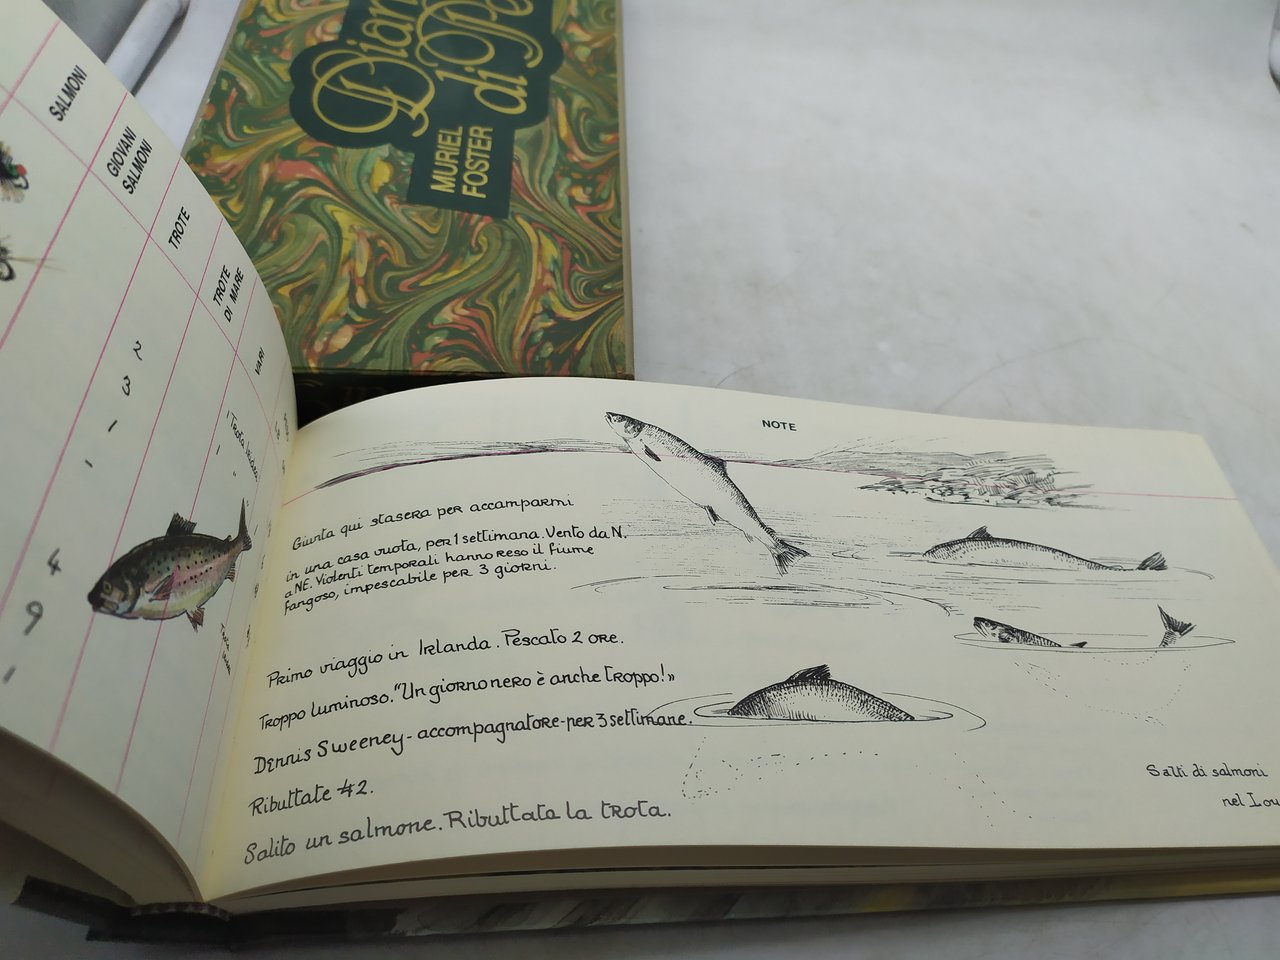 MURIEL
FOSTER
di
SALMONI
GIOVANI
SALMONI
TROTE
TROTE
DI MARE
VARI
2
3
1
1
4
9
1
NOTE
Giunta qui stasera per accamparmi
in una casa vuota, per 1 settimana. Vento da N.
a NE. Violenti temporali hanno reso il fiume
fangoso, impescabile per 3 giorni.
Primo viaggio in Irlanda. Pescato 2 ore.
Troppo luminoso. "Un giorno nero è anche troppo!»
Dennis Sweeney - accompagnatore - per 3 settimane.
Ributtate #2.
Salito un salmone. Ributtata la trota.
Salti di salmoni
nel Lou